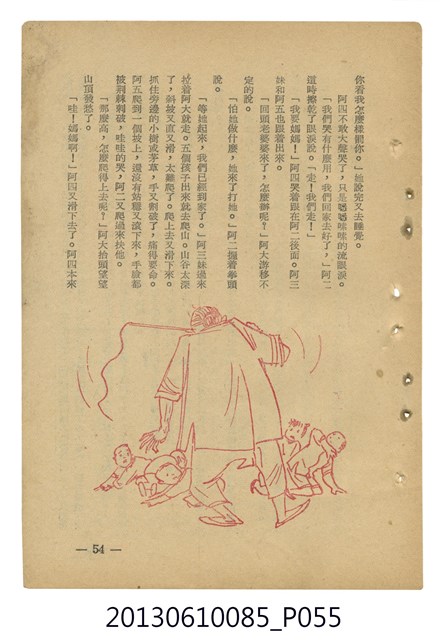 你看我怎麼樣罰你。」她說完又去睡覺。
阿四不敢大聲哭了,只是嗚嗚咪咪的流眼淚。
「我們哭有什麼用,我們回家去好了,」阿二
這時擦乾了眼淚說。「走!我們走!」
「我要媽媽!」阿四哭着跟在阿二後面。阿三
妹和阿五也跟着出來。
「回頭老婆婆來了,怎麼辦呢?」阿大游移不
定的說。
「怕她做什麼,她來了打她。」阿二握着拳頭
說。
「等她起來,我們已經到家了。」阿三妹過來
拉着阿大就走。五個孩子出來就去爬山。山谷太深
了,斜坡又直又滑,太難爬了。爬上去又滑下來。
抓住旁邊的小樹或茅草,手又劃破了,痛得要命。
阿五爬到一個坡上,還沒有站穩又滾下來,手臉都
被荆棘刺破,哇哇的哭,阿二又爬過來扶他。
「那麼高,怎麼爬得上去呢?」阿大抬頭望望
山頂發愁了。
「哇!媽媽啊!」阿四又滑下去了。阿四本來
— 54 —
20130610085_P055